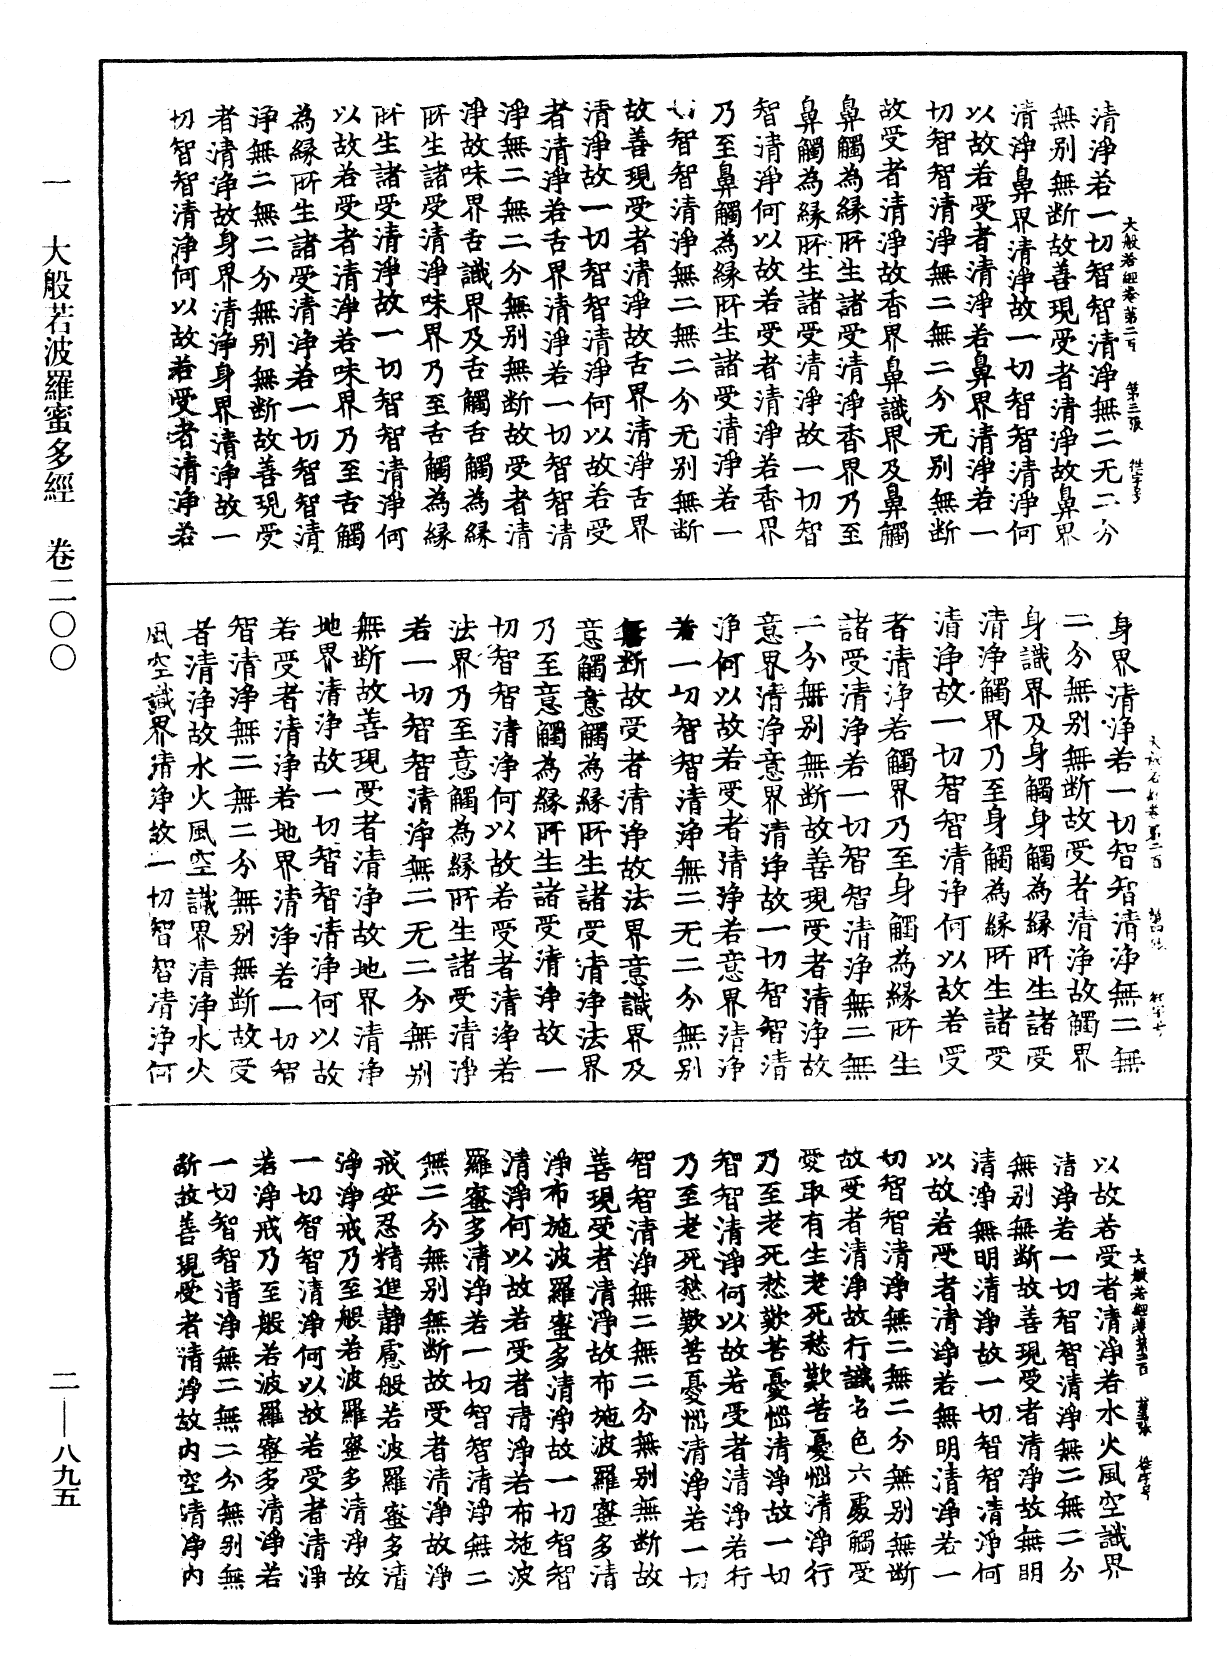 清淨若一切智智清淨無二无二分
無别無断故善現受者清淨故鼻界
清淨鼻界清淨故一切智智清淨何
以故若受者清淨若鼻界清淨若一
切智智清淨無二無二分无别無断
故受者清淨故香界鼻識界及鼻觸
鼻觸為縁所生諸受清淨香界乃至
鼻觸為縁所生諸受清淨故一切智
智清淨何以故若受者清淨若香界
乃至鼻觸為縁所生諸受清淨若一
切智智清淨無二無二分无别無断
故善現受者清淨故舌界清淨舌界
清淨故一切智智清淨何以故若受
者清淨若舌界清淨若一切智智清
淨無二無二分無别無断故受者清
淨故味界舌識界及舌觸舌觸為縁
所生諸受清淨味界乃至舌觸為縁
所生諸受清淨故一切智智清淨何
以故若受者清淨若味界乃至舌觸
為縁所生諸受清淨若一切智智清
淨無二無二分無别無断故善現受
者清淨故身界清淨身界清淨故一
切智智清淨何以故若受者清淨若
大般若經卷第二百　第三張　往字号
身界清淨若一切智智清淨無二無
二分無别無断故受者清淨故觸界
身識界及身觸身觸為縁所生諸受
清淨觸界乃至身觸為縁所生諸受
清淨故一切智智清淨何以故若受
者清淨若觸界乃至身觸為縁所生
諸受清淨若一切智智清淨無二無
二分無别無断故善現受者清淨故
意界清淨意界清淨故一切智智清
淨何以故若受者清淨若意界清淨
若一切智智清淨無二无二分無别
無断故受者清淨故法界意識界及
意觸意觸為縁所生諸受清淨法界
乃至意觸為縁所生諸受清淨故一
切智智清淨何以故若受者清淨若
法界乃至意觸為縁所生諸受清淨
若一切智智清淨無二无二分無别
無断故善現受者清淨故地界清淨
地界清淨故一切智智清淨何以故
若受者清淨若地界清淨若一切智
智清淨無二無二分無别無断故受
者清淨故水火風空識界清淨水火
風空識界清淨故一切智智清淨何
以故若受者清淨若水火風空識界
清淨若一切智智清淨無二無二分
無别無断故善現受者清淨故無明
清淨無明清淨故一切智智清淨何
以故若受者清淨若無明清淨若一
切智智清淨無二無二分無别無断
故受者清淨故行識名色六處觸受
愛取有生老死愁歎苦憂惱清淨行
乃至老死愁歎苦憂惱清淨故一切
智智清淨何以故若受者清淨若行
乃至老死愁歎苦憂惱清淨若一切
智智清淨無二無二分無别無断故
善現受者清淨故布施波羅蜜多清
淨布施波羅蜜多清淨故一切智智
清淨何以故若受者清淨若布施波
羅蜜多清淨若一切智智清淨無二
無二分無别無断故受者清淨故淨
戒安忍精進靜慮般若波羅蜜多清
淨淨戒乃至般若波羅蜜多清淨故
一切智智清淨何以故若受者清淨
若淨戒乃至般若波羅蜜多清淨若
一切智智清淨無二無二分無别無
断故善現受者清淨故内空清淨内
一　大般若波羅蜜多經　卷二〇〇
二—八九五